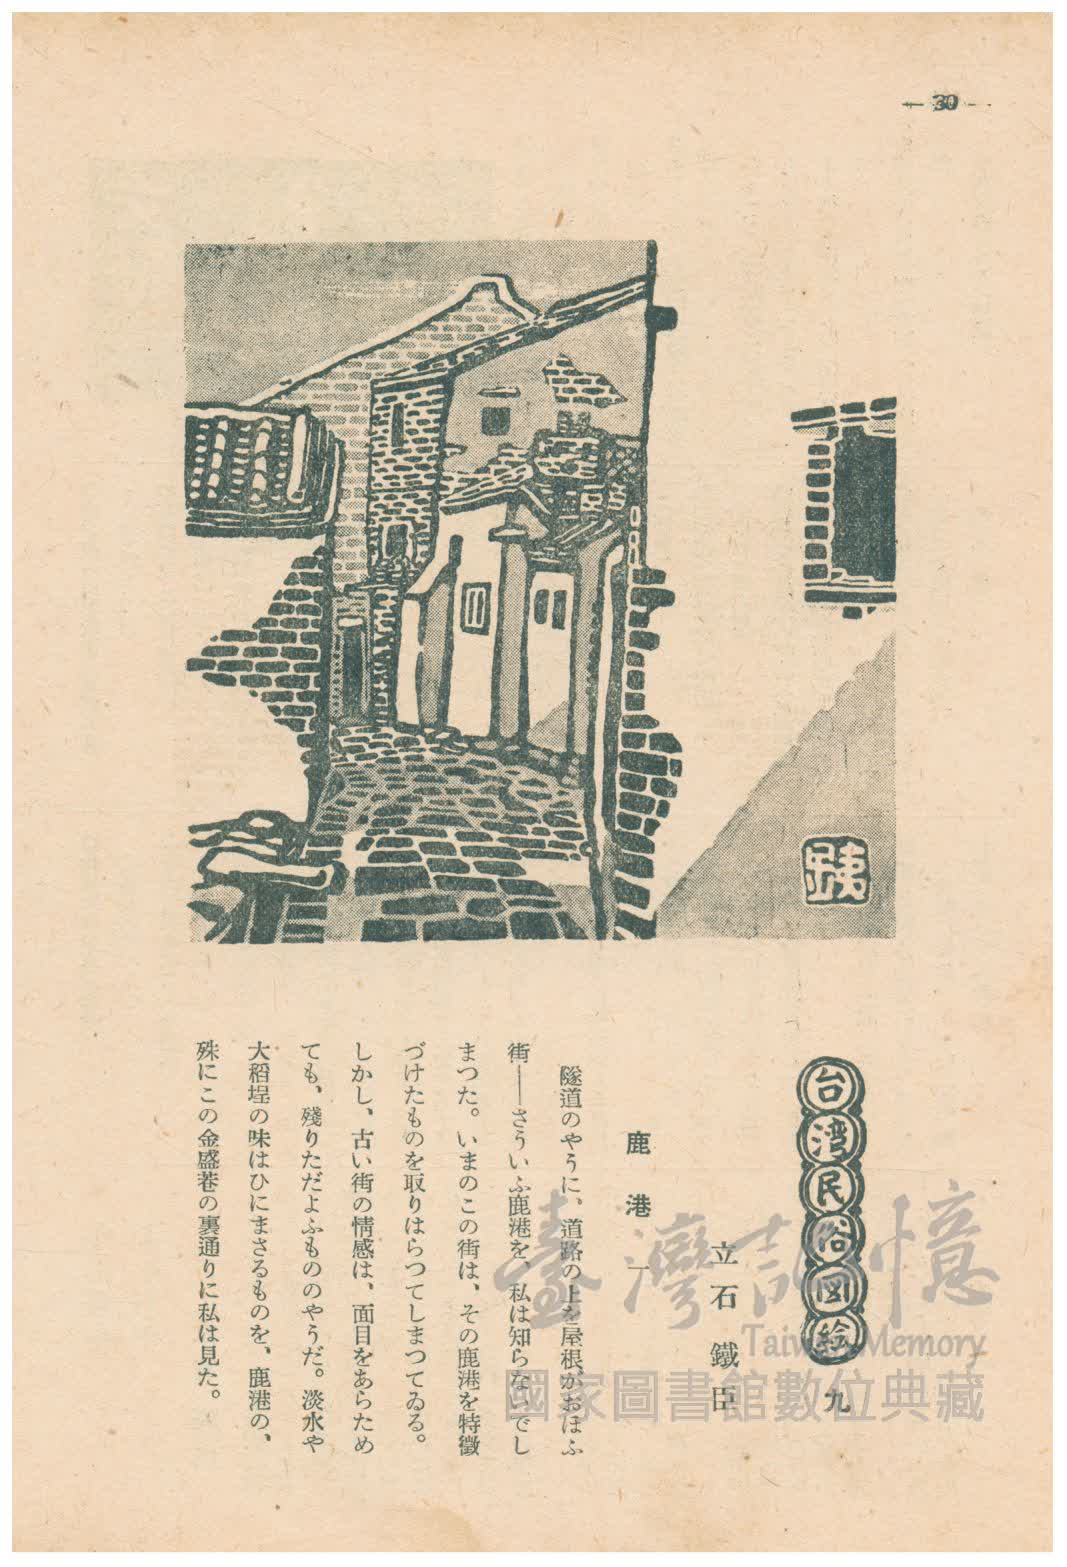 30
鉄
台湾民俗図絵 九
立石鐵臣
鹿港 一
隧道のやうに、道路の上を屋根がおほふ
街──さういふ鹿港を、私は知らないでし
まつた。いまのこの街は、その鹿港を特徴
づけたものを取りはらつてしまつてゐる。
しかし、古い街の情感は、面目をあらため
ても、残りただよふもののやうだ。淡水や
大稻埕の味はひにまさるものを、鹿港の、
殊にこの金盛巷の裏通りに私は見た。
臺灣記憶
Taiwan Memory
國家圖書館數位典藏